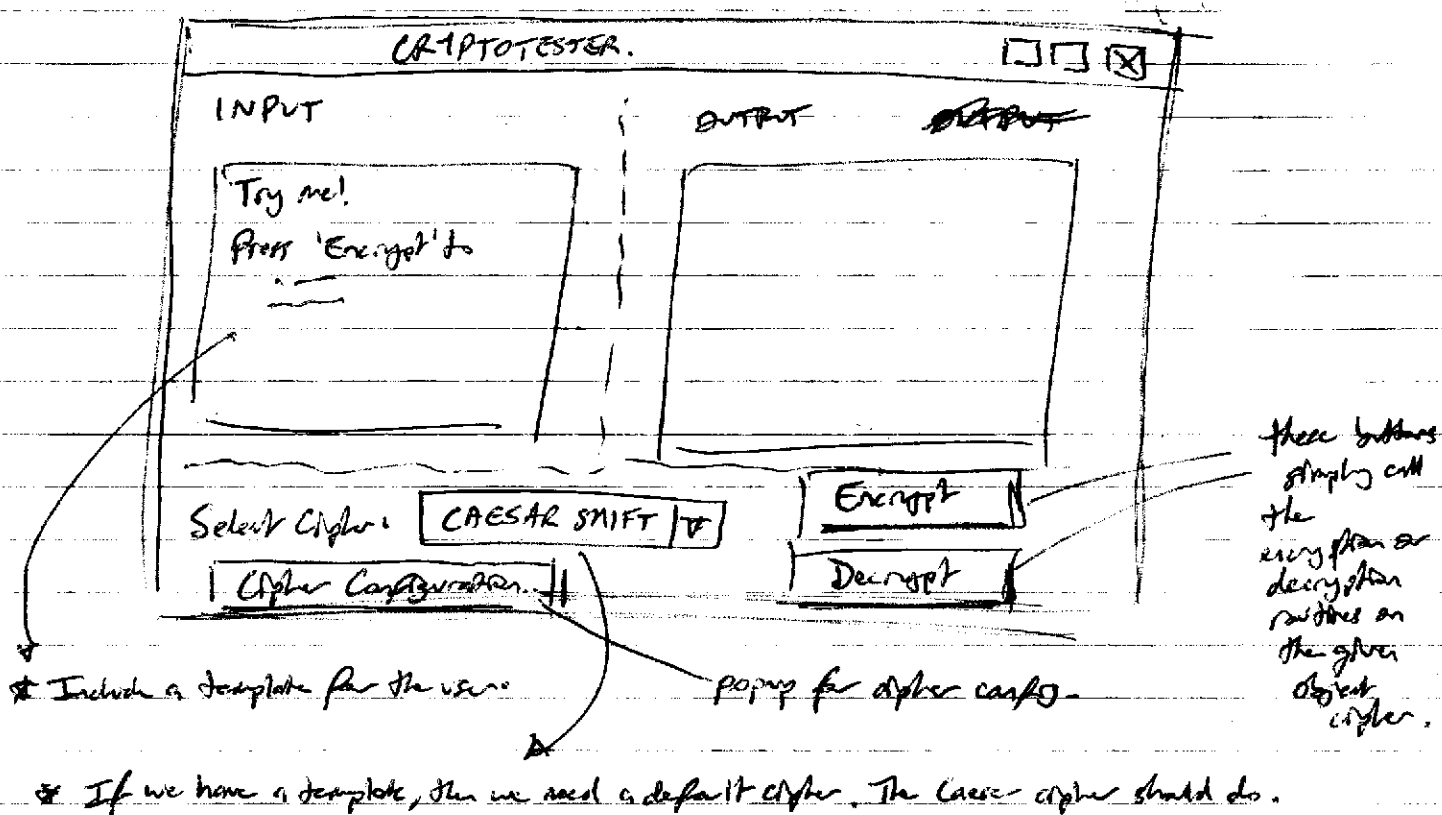 CRYPTOTESTER.
INPUT
OUTPUT
Try me!
Press 'Encrypt' to
Select Cipher:
CAESAR SHIFT
Encrypt
Cipher Configuration...
Decrypt
these buttons
simply call
the
encryption or
decryption
routines on
the given
object
cipher.
* Include a template for the user.
popup for cipher config.
* If we have a template, then we need a default cipher. The Caesar cipher should do.